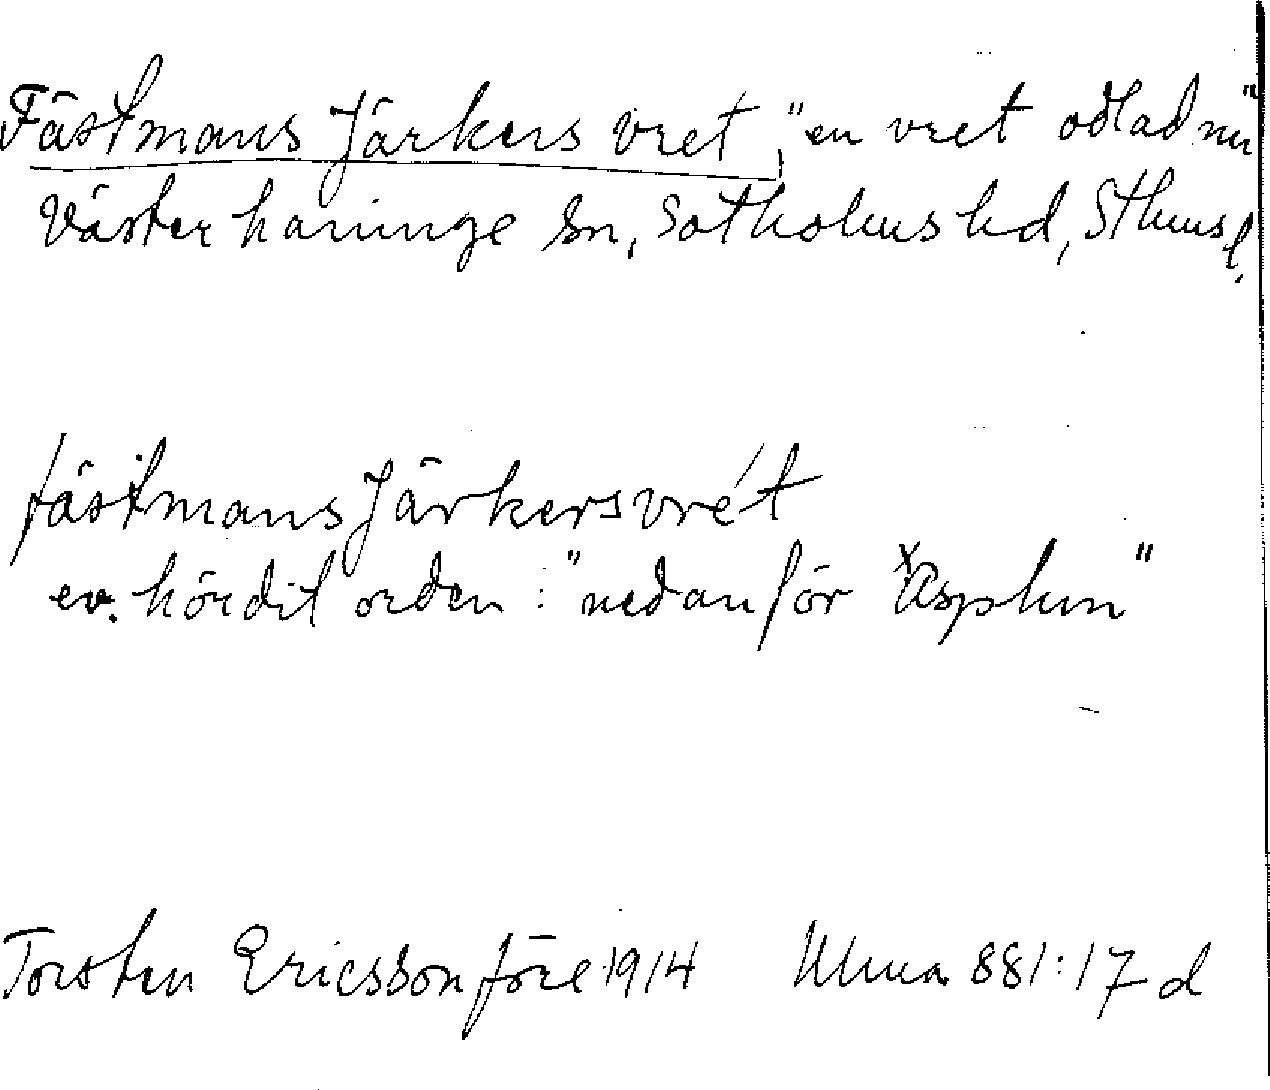 Fästmans Järkers vret, "en vret odlad nu"
Västerhaninge sn, Sotholms hd, Sthms l.
fästmans Järkersvrét
ev. hör dit orden: "nedanför ˣAsplun"
Torsten Ericsson före 1914 Uluma 881:17 d